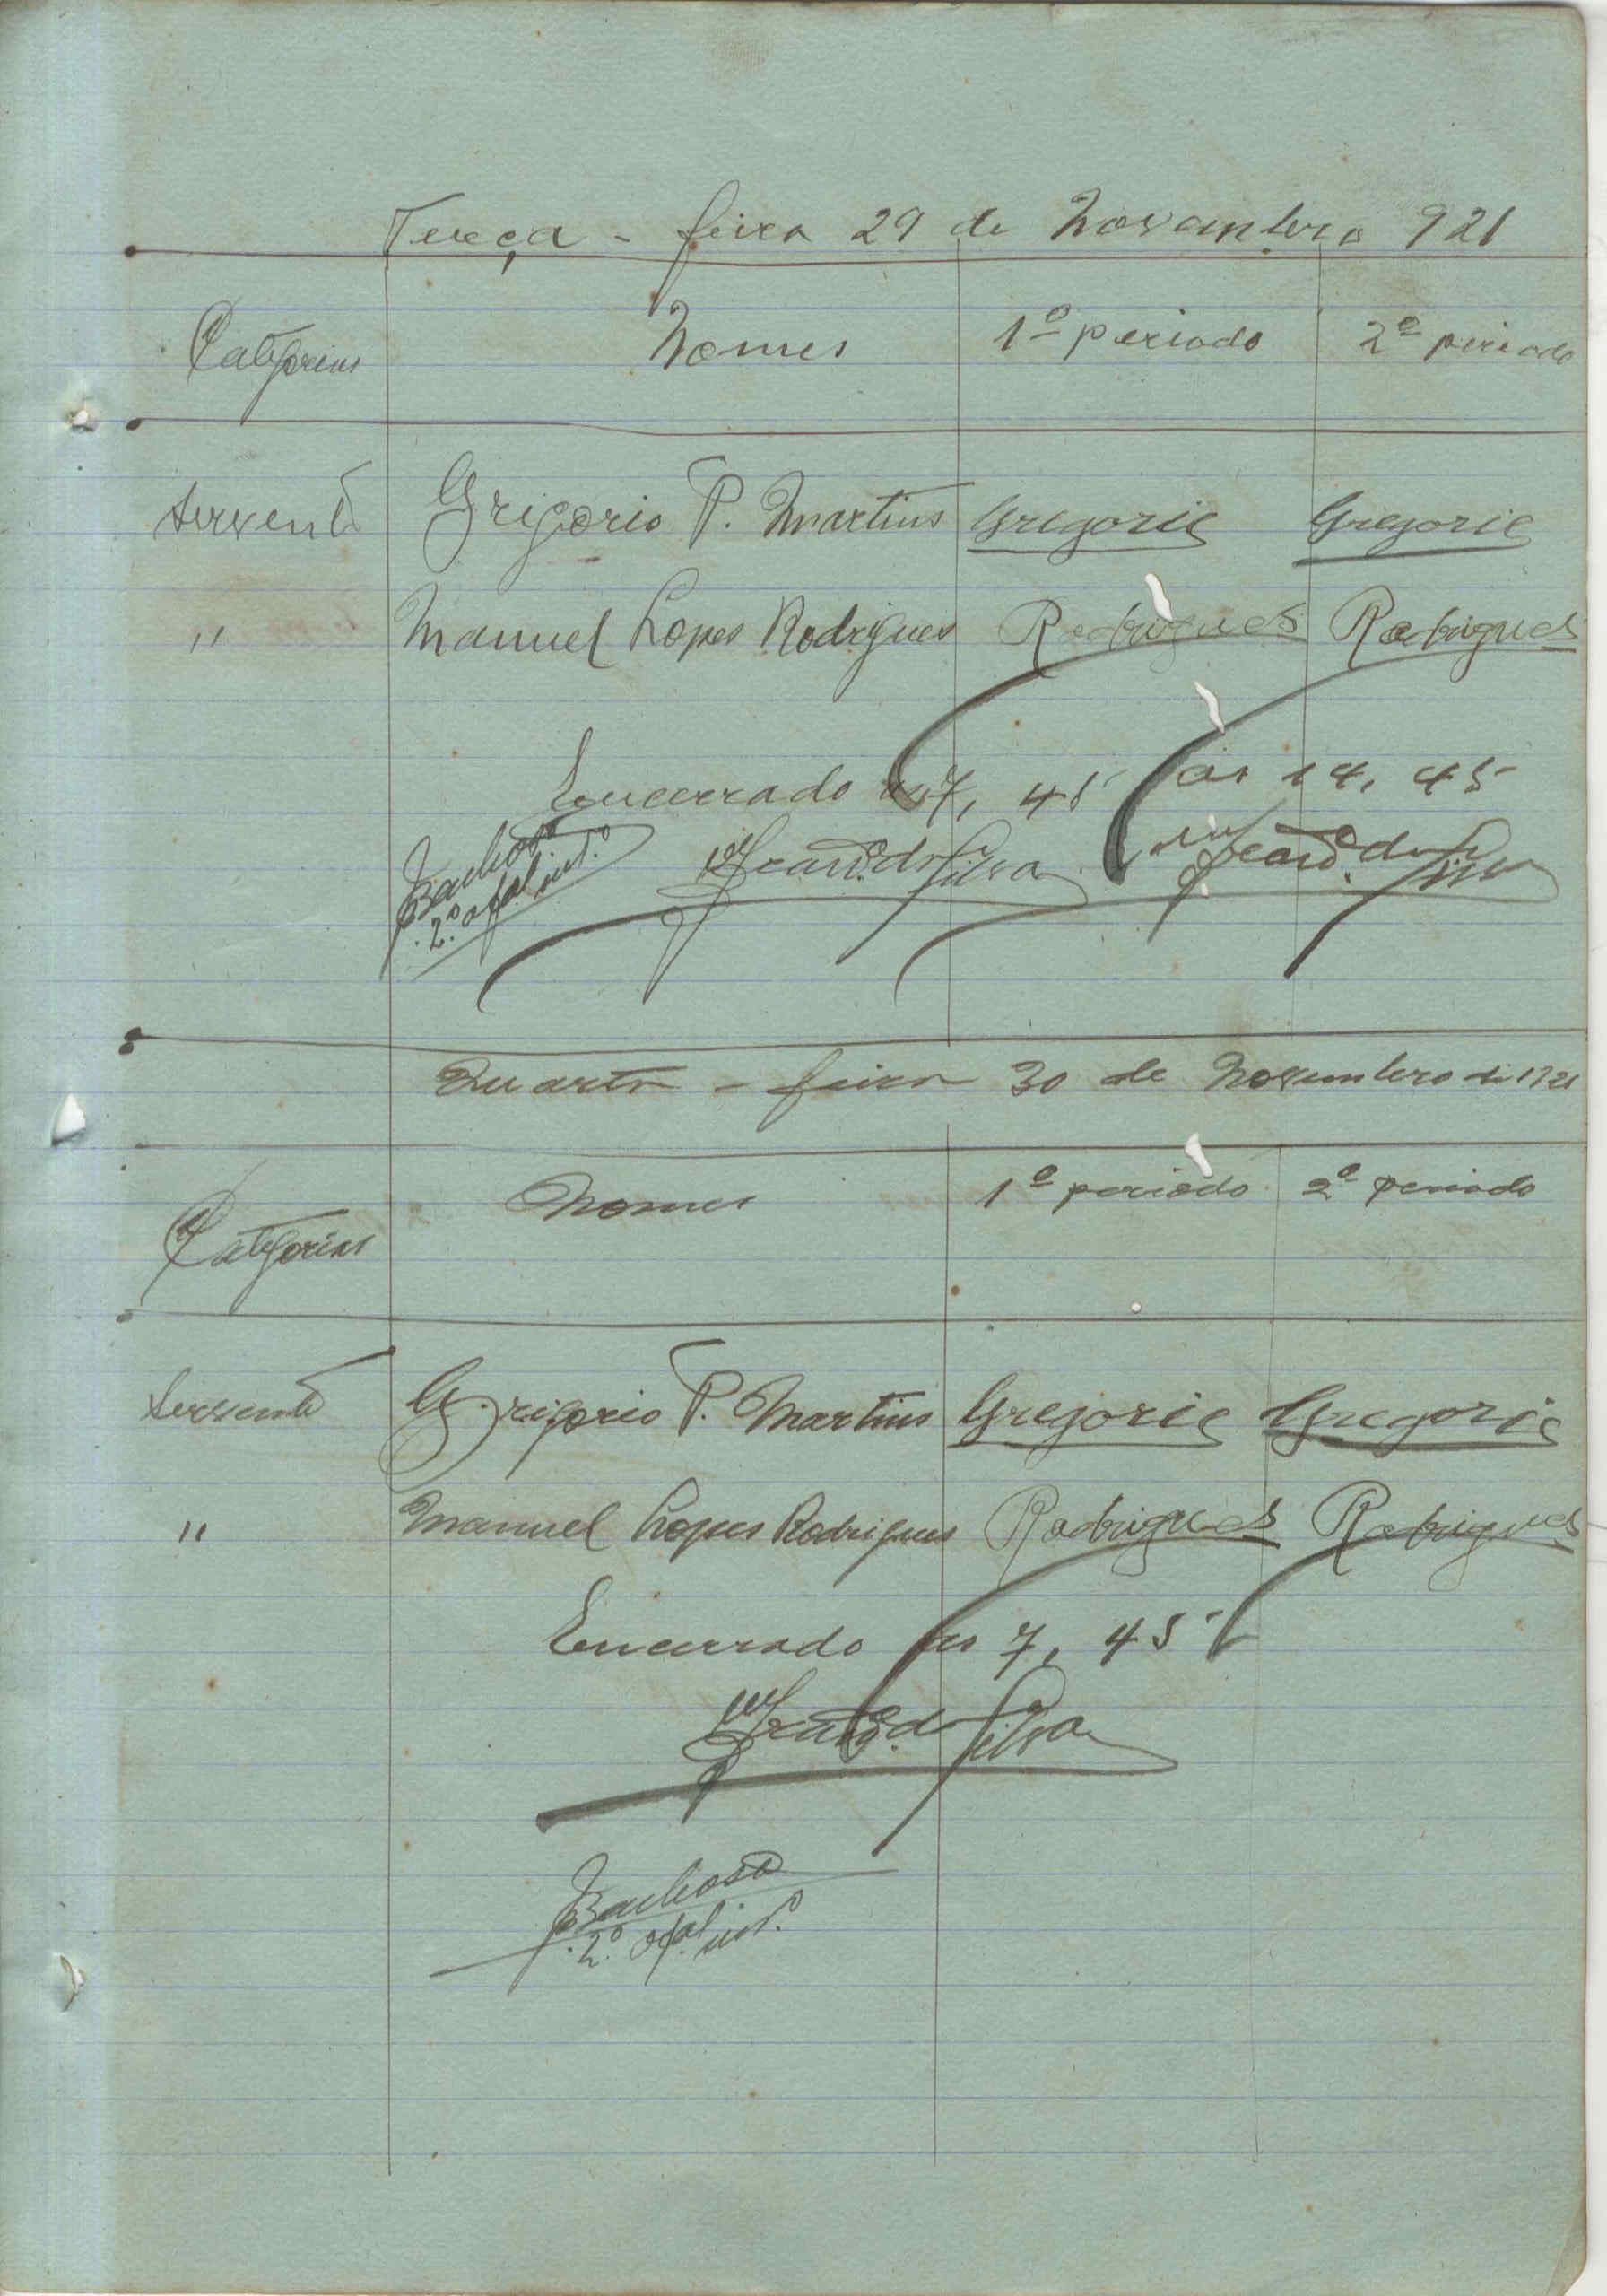 Terça - feira 29 de Novembro 921
Categorias Nomes 1º periodo 2º periodo
Servente Grigorio P. Martins Gregorio Gregorio
" Manuel Lopes Rodrigues Rodrigues Rodrigues
Encerrado as 7, 45 as 14, 45
Barbosa
2º ofal int.º
da Silva da Silva
Quarta - feira 30 de Novembro de 1921
Nomes 1º periodo 2º periodo
Categorias
Servente Grigorio P. Martins Gregorio Gregorio
" Manuel Lopes Rodrigues Rodrigues Rodrigues
Encerrado as 7, 45
da Silva
Barbosa
2º ofal int.º